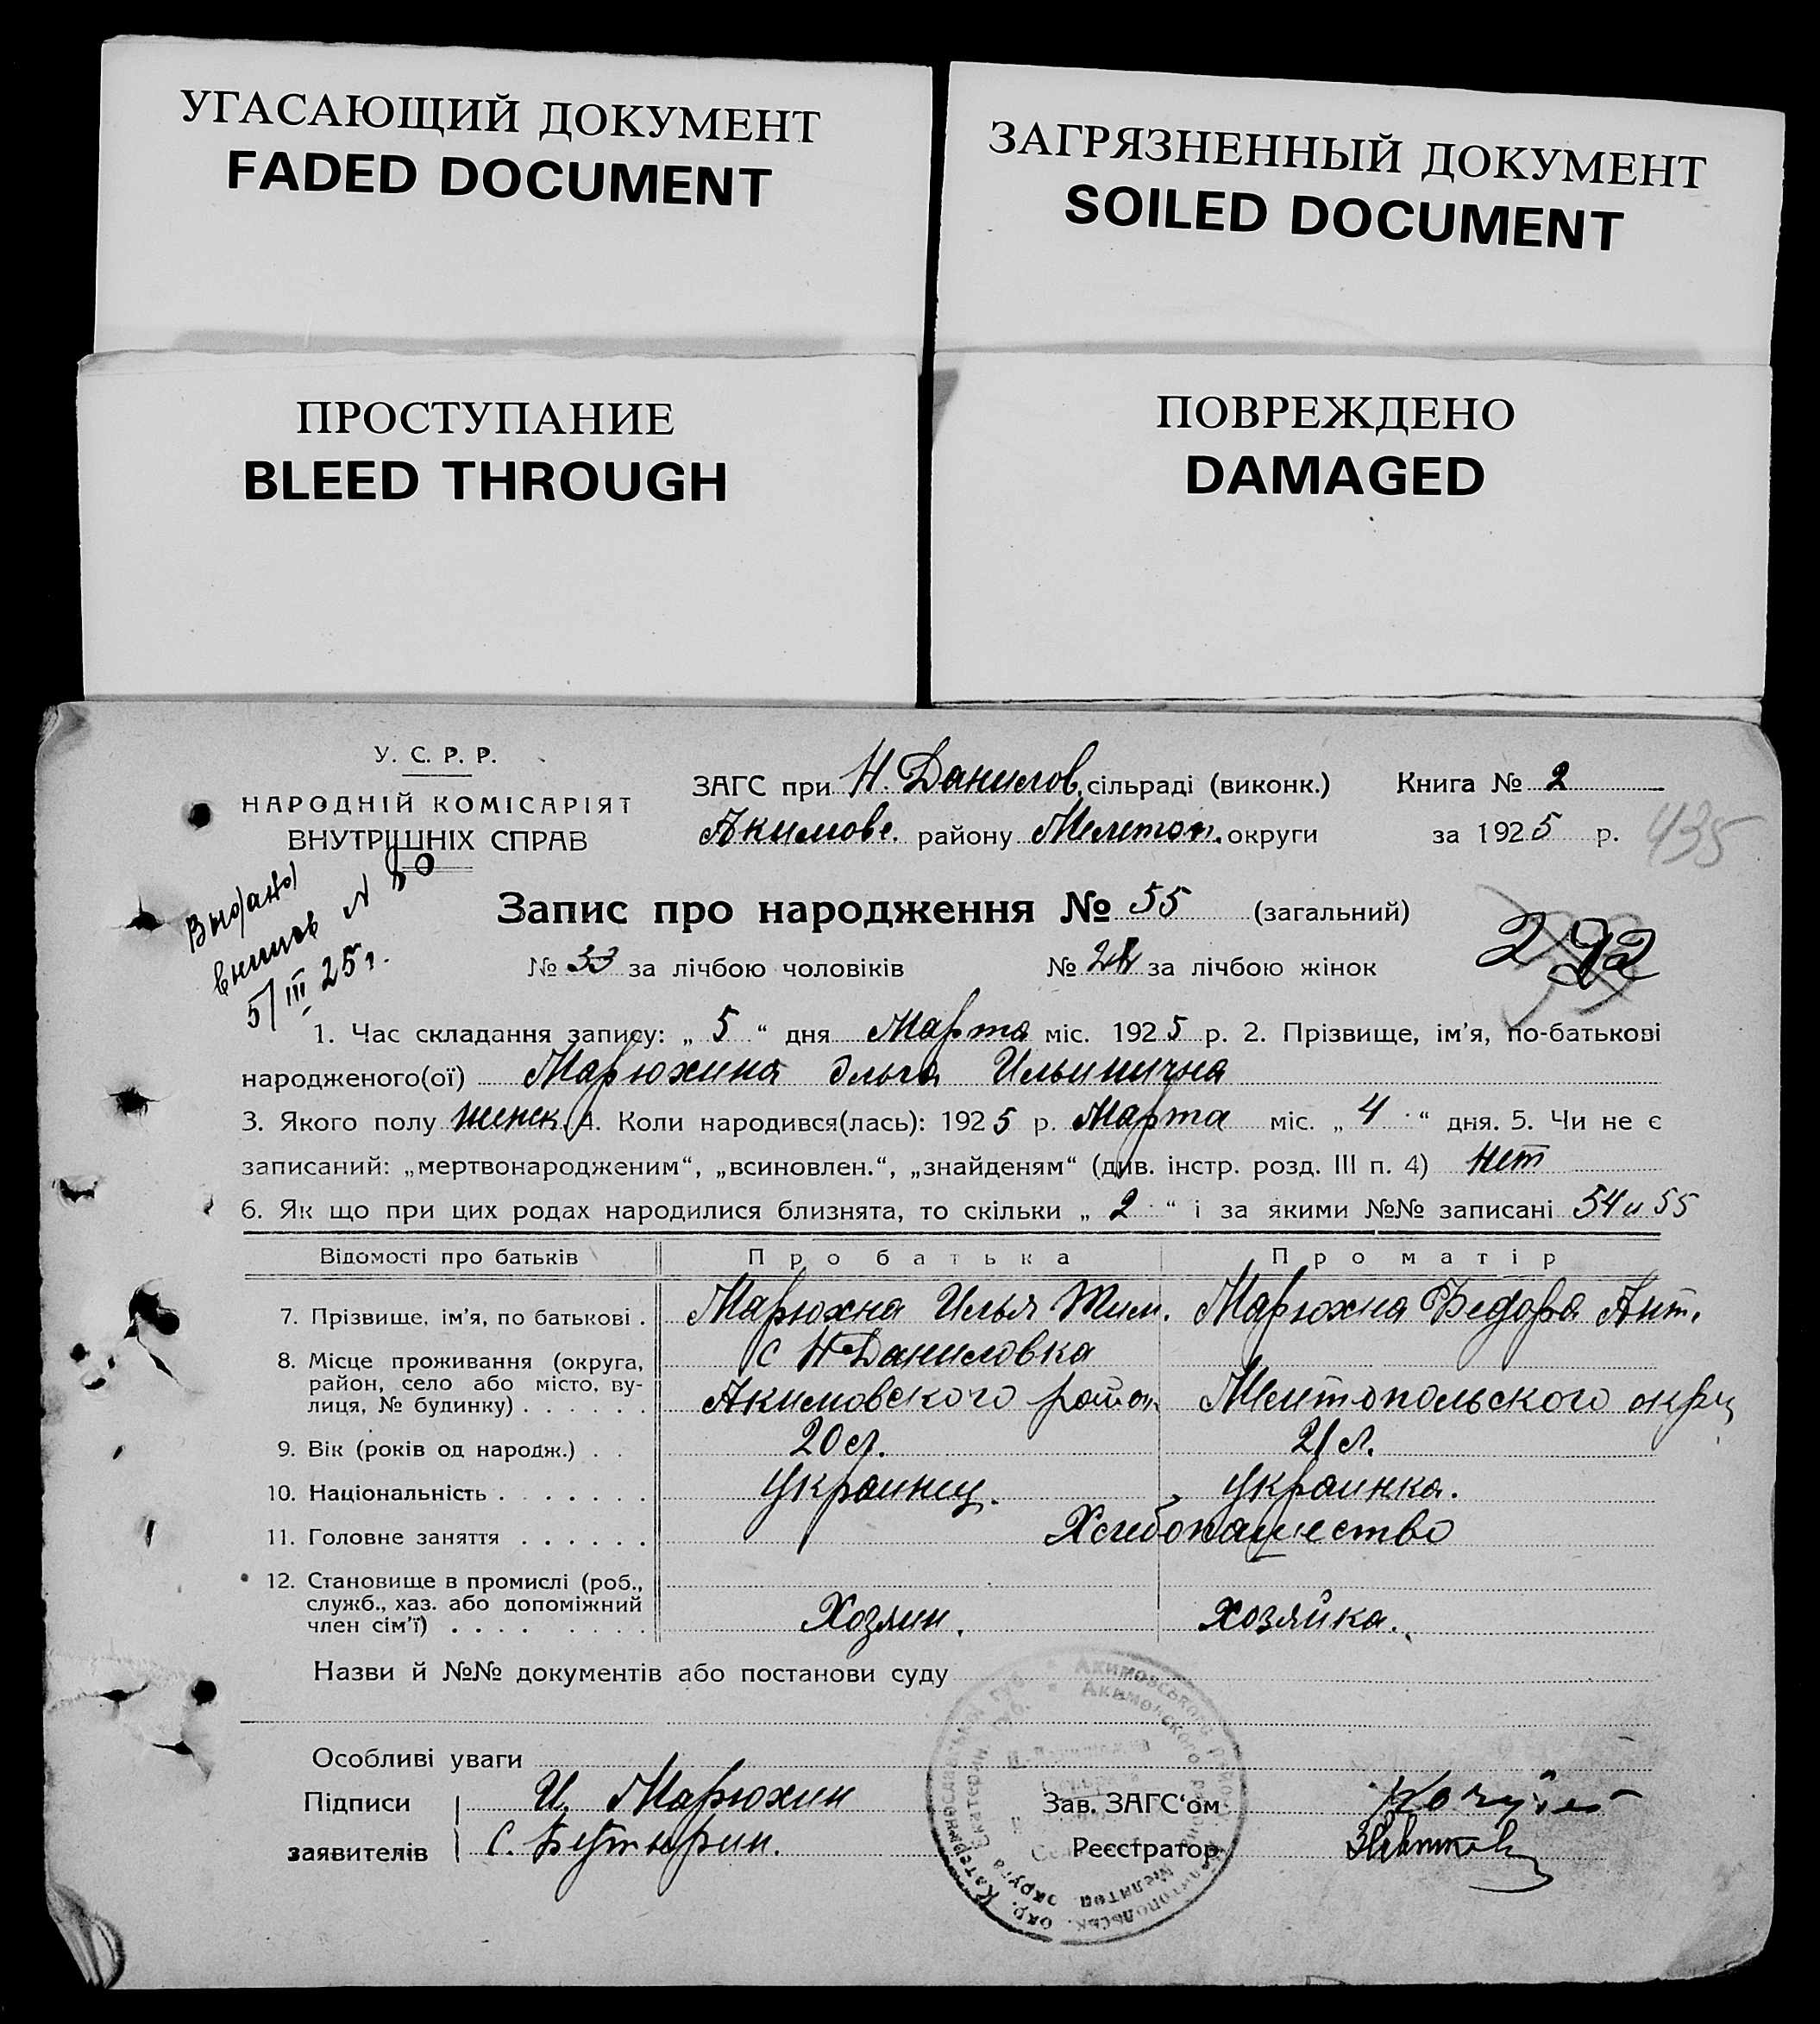 УГАСАЮЩИЙ ДОКУМЕНТ
FADED DOCUMENT
ЗАГРЯЗНЕННЫЙ ДОКУМЕНТ
SOILED DOCUMENT
ПРОСТУПАНИЕ
BLEED THROUGH
ПОВРЕЖДЕНО
DAMAGED
У. С. Р. Р.
НАРОДНІЙ КОМІСАРІЯТ
ВНУТРІШНІХ СПРАВ
ЗАГС при Н. Данилов. сільраді (виконк.) Книга № 2
Акимовс. району Мелетоп. округи за 1925 р.
435
Выдано
выпись N 80
5/III 25 г.
Запис про народження № 55 (загальний)
292
№ 33 за лічбою чоловіків № за лічбою жінок
1. Час складання запису: „ 5 “ дня Марта міс. 1925 р. 2. Прізвище, ім’я, по-батькові
народженого(ої) Марюхина Ольга Ильинична
3. Якого полу женск. 4. Коли народився(лась): 1925 р. Марта міс. „ 4 “ дня. 5. Чи не є
записаний: „мертвонародженим“, „всиновлен.“, „знайденям“ (див. інстр. розд. III п. 4) нет
6. Як що при цих родах народилися близнята, то скільки „ 2 “ і за якими №№ записані 54 и 55
Відомості про батьків Про батька Про матір
7. Прізвище, ім’я, по батькові . Марюхна Илья Тим. Марюхна Федора Ант.
8. Місце проживання (округа, с Н Даниловка
район, село або місто, ву-
лиця, № будинку) . . . . . . Акимовского район Мелитопольского окру
9. Вік (років од народж.) . . 20 л. 21 л.
10. Національність . . . . . . . Украинец. Украинка.
11. Головне заняття . . . . . . Хлебопашество
12. Становище в промислі (роб.,
служб., хаз. або допоміжний
член сім’ї) . . . . . . . . Хозяин. хозяйка.
Назви й №№ документів або постанови суду
Особливі уваги
Підписи И. Марюхин Зав. ЗАГС‘ом
заявителів С. Бутырин. Реєстратор